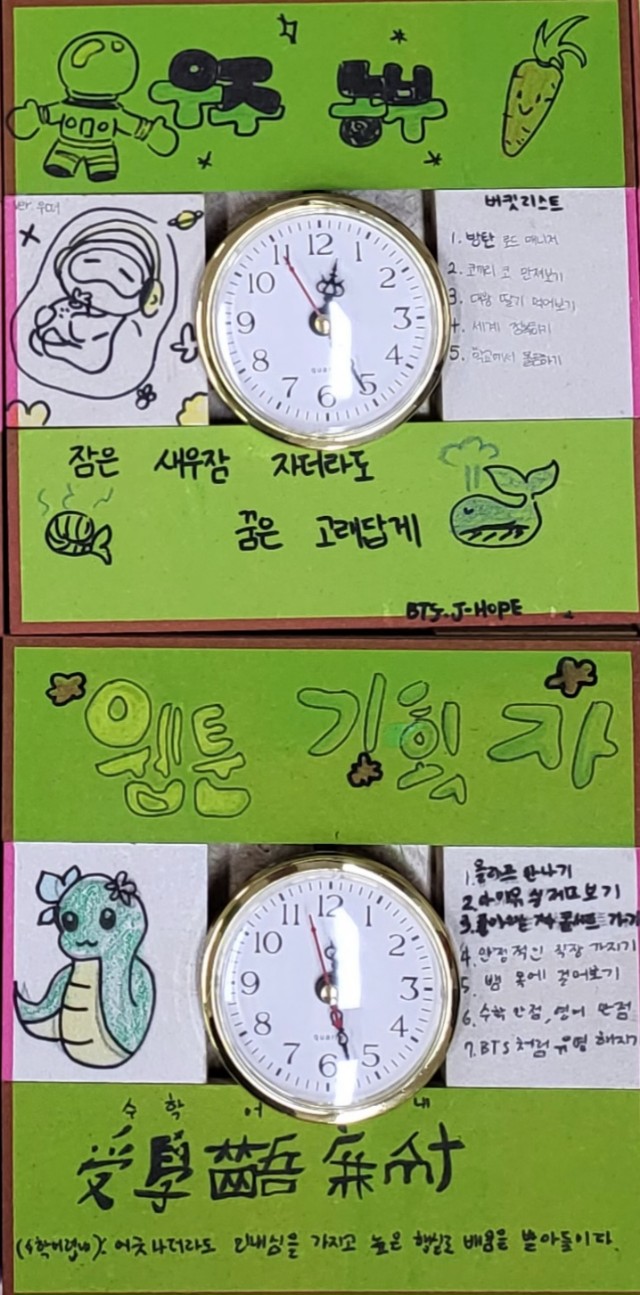 우주 뿡뿡
ver. 우떠
버킷리스트
1. 방탄 로드 매니저
2. 코끼리 코 만져보기
3. 대왕 딸기 먹어보기
4. 세계 정복하기
5. 학교에서
12 1 2 3 4 5 6 7 8 9 10 11
quartz
잠은 새우잠 자더라도
꿈은 고래답게
BTS. J-HOPE
웹툰 기획자
1. 올라프 만나기
2.
3. 좋아하는 가수 콘서트 가기
4. 안정적인 직장 가지기
5. 뱀 목에 걸어보기
6. 수학 만점, 영어 만점
7. BTS 처럼 유명 해지기
12 1 2 3 4 5 6 7 8 9 10 11
quartz
수 학 어 내
受學齬
(수학어렵내): 어긋나더라도 인내심을 가지고 높은 행실로 배움을 받아들이다.